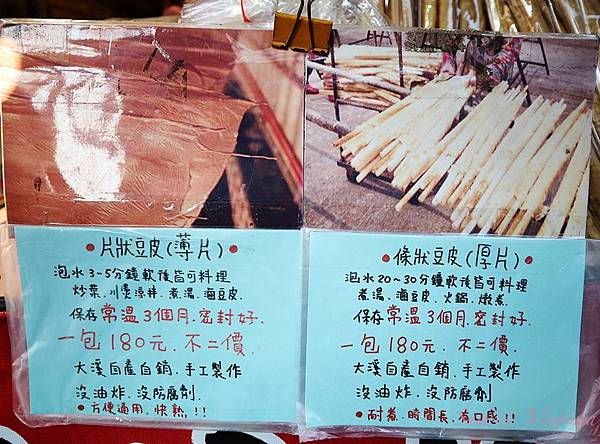 片狀豆皮(薄片)
泡水3-5分鐘軟後皆可料理
炒菜、川燙涼拌、煮湯、滷豆皮、
保存常溫3個月.密封好.
一包180元.不二價.
大溪自產自銷.手工製作
沒油炸、沒防腐劑
方便適用.快熟.!!
條狀豆皮(厚片)
泡水20~30分鐘軟後皆可料理
煮湯、滷豆皮、火鍋、燉煮
保存常溫3個月.密封好.
一包180元.不二價.
大溪自產自銷.手工製作
沒油炸、沒防腐劑
耐煮.時間長.有口感!!